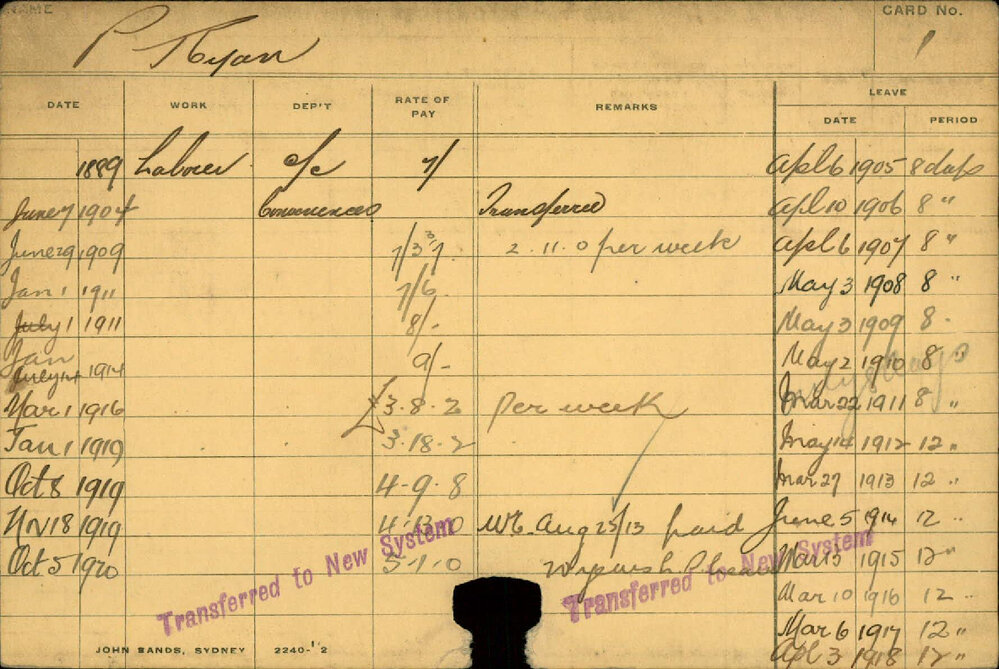 NAME
CARD No.
P Ryan
1
DATE WORK DEP'T RATE OF PAY REMARKS LEAVE
DATE PERIOD
1889 Laborer o/c 7/ Apl 6 1905 8 days
June 7 1904 Conveniences Transferred Apl 10 1906 8 "
June 29 1909 7/3 2.11.0 per week Apl 6 1907 8 "
Jan 1 1911 7/6 May 3 1908 8 "
July 1 1911 8/- May 3 1909 8 "
Jan 1914 9/- May 2 1910 8
Mar 1 1916 £3.8.2 per week Mar 22 1911 8 "
Jan 1 1919 3.18.2 May 14 1912 12 "
Oct 8 1919 4-9-8 Mar 27 1913 12 "
Nov 18 1919 4-13-0 Aug 25/13 paid June 5 1914 12 "
Oct 5 1920 5-1-0 Mar 13 1915 12 "
Mar 10 1916 12 "
Mar 6 1917 12 "
Apl 3 1918 12 "
Transferred to New System
Transferred to New System
JOHN SANDS, SYDNEY 2240-12